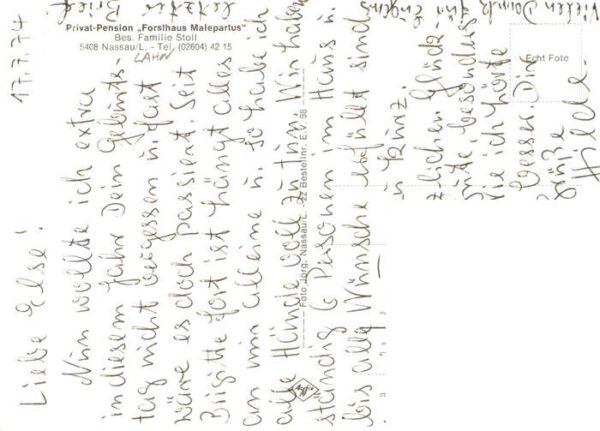 Privat-Pension „Forsthaus Malepartus"
Bes. Familie Stoll
5408 Nassau/L. - Tel. (02604) 42 15
LAHN
Echt Foto
Foto Jörg, Nassau/L. 22 Bestellnr. E.V. 98
17.7.74
Liebe Else!
Nun wollte ich extra
in diesem Jahr Dein Geburts-
tag nicht vergessen u. fast
wäre es doch passiert. Seit
Birgitte fort ist hängt alles
an mir alleine u. so habe ich
alle Hände voll zu tun. Wir haben
ständig 6 Personen im Haus u.
bis alle Wünsche erfüllt sind
Kurz.
zlichen Glück
besonders
ie ich hörte
besser Dir
Grüße
Hilde.
Vielen Dank für
letzten Brief